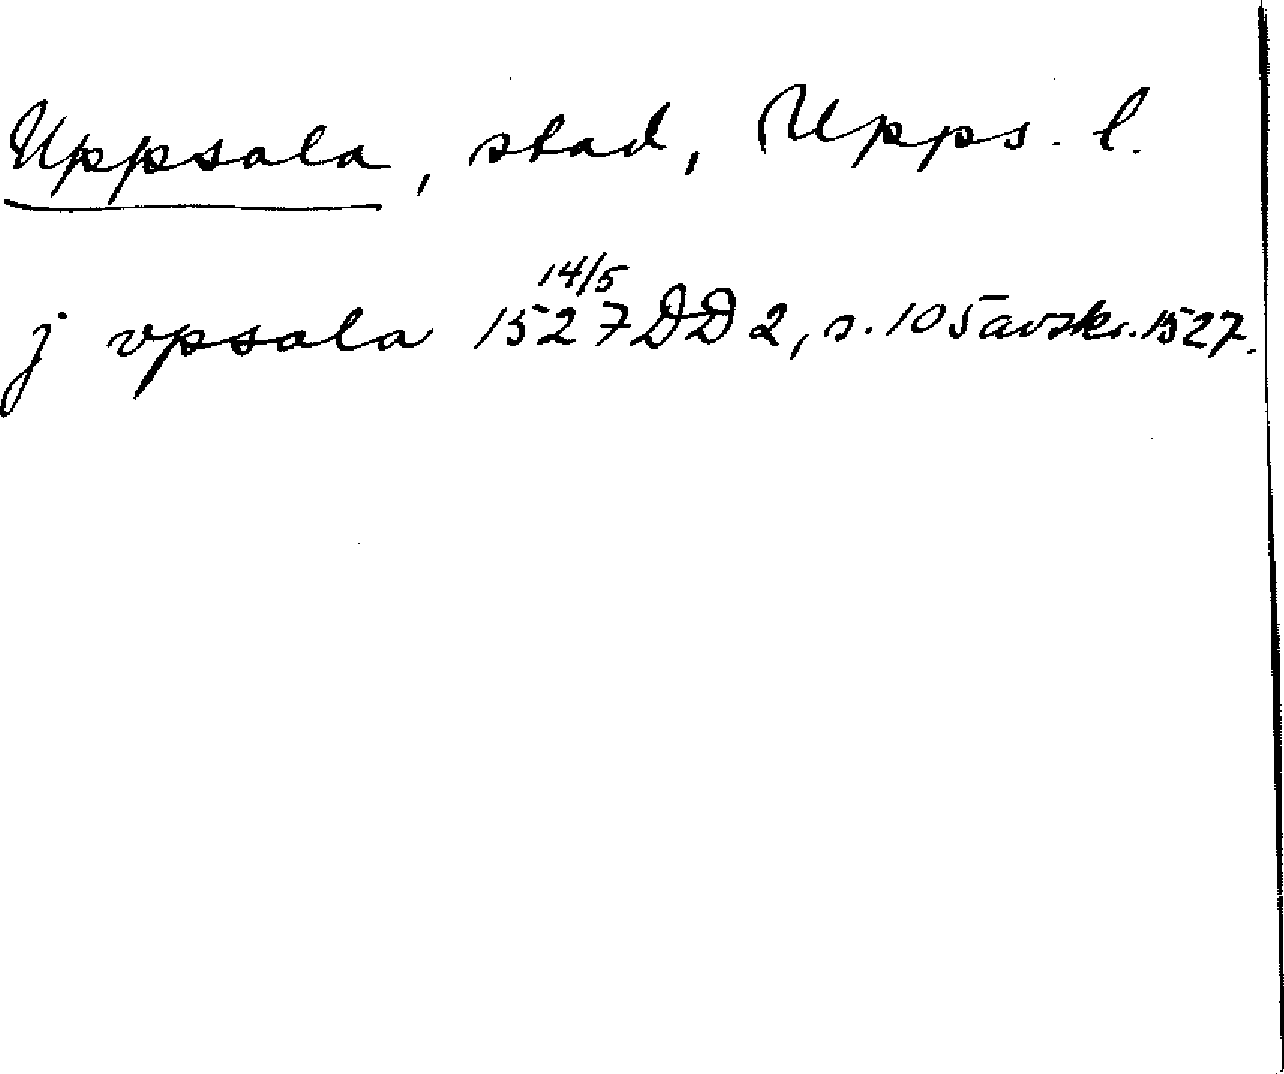 Uppsala, stad, Upps. l.
j vpsala 1527 14/5 DD 2, s. 105 avskr. 1527.